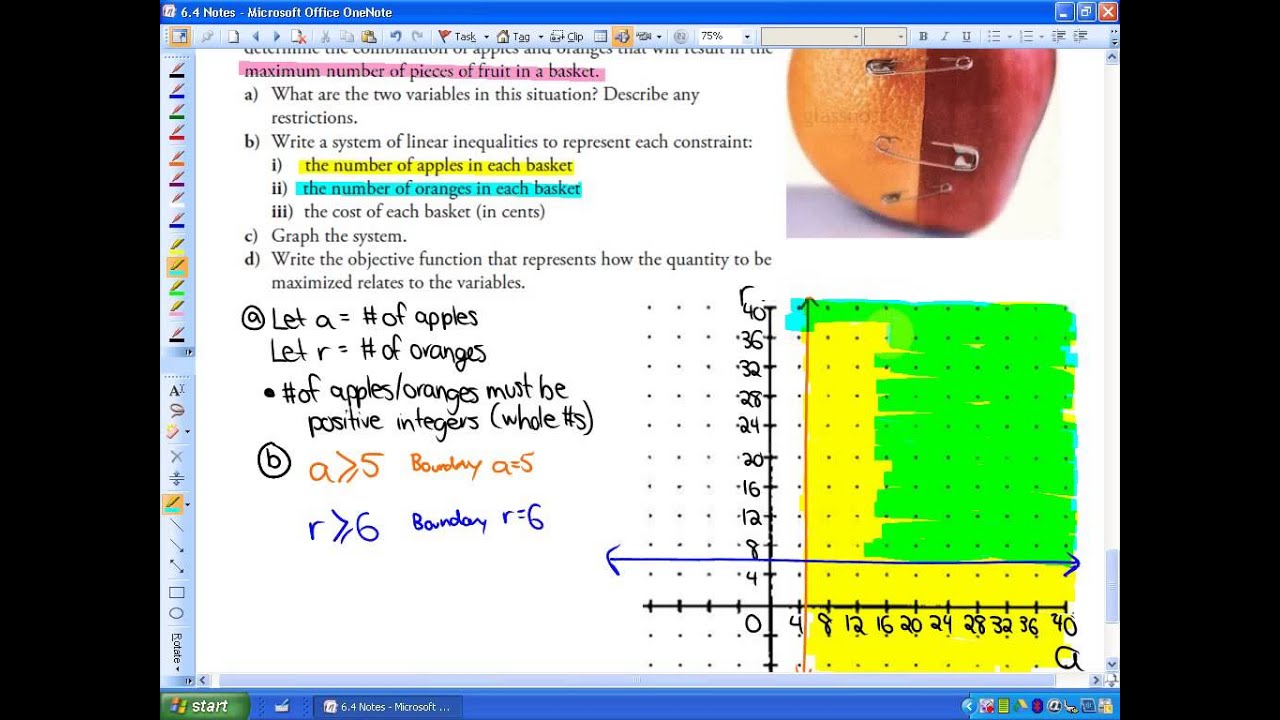 6.4 Notes - Microsoft Office OneNote
Task Tag Clip 75% B I U
determine the combination of apples and oranges that will result in the
maximum number of pieces of fruit in a basket.
a) What are the two variables in this situation? Describe any
restrictions.
b) Write a system of linear inequalities to represent each constraint:
i) the number of apples in each basket
ii) the number of oranges in each basket
iii) the cost of each basket (in cents)
c) Graph the system.
d) Write the objective function that represents how the quantity to be
maximized relates to the variables.
a Let a = # of apples
Let r = # of oranges
• # of apples/oranges must be
positive integers (whole #s)
b a ⩾ 5 Boundary a=5
r ⩾ 6 Boundary r=6
r
40
36
32
28
24
20
16
12
8
4
0 4 8 12 16 20 24 28 32 36 40
a
Rotate
start 6.4 Notes - Microsoft ...